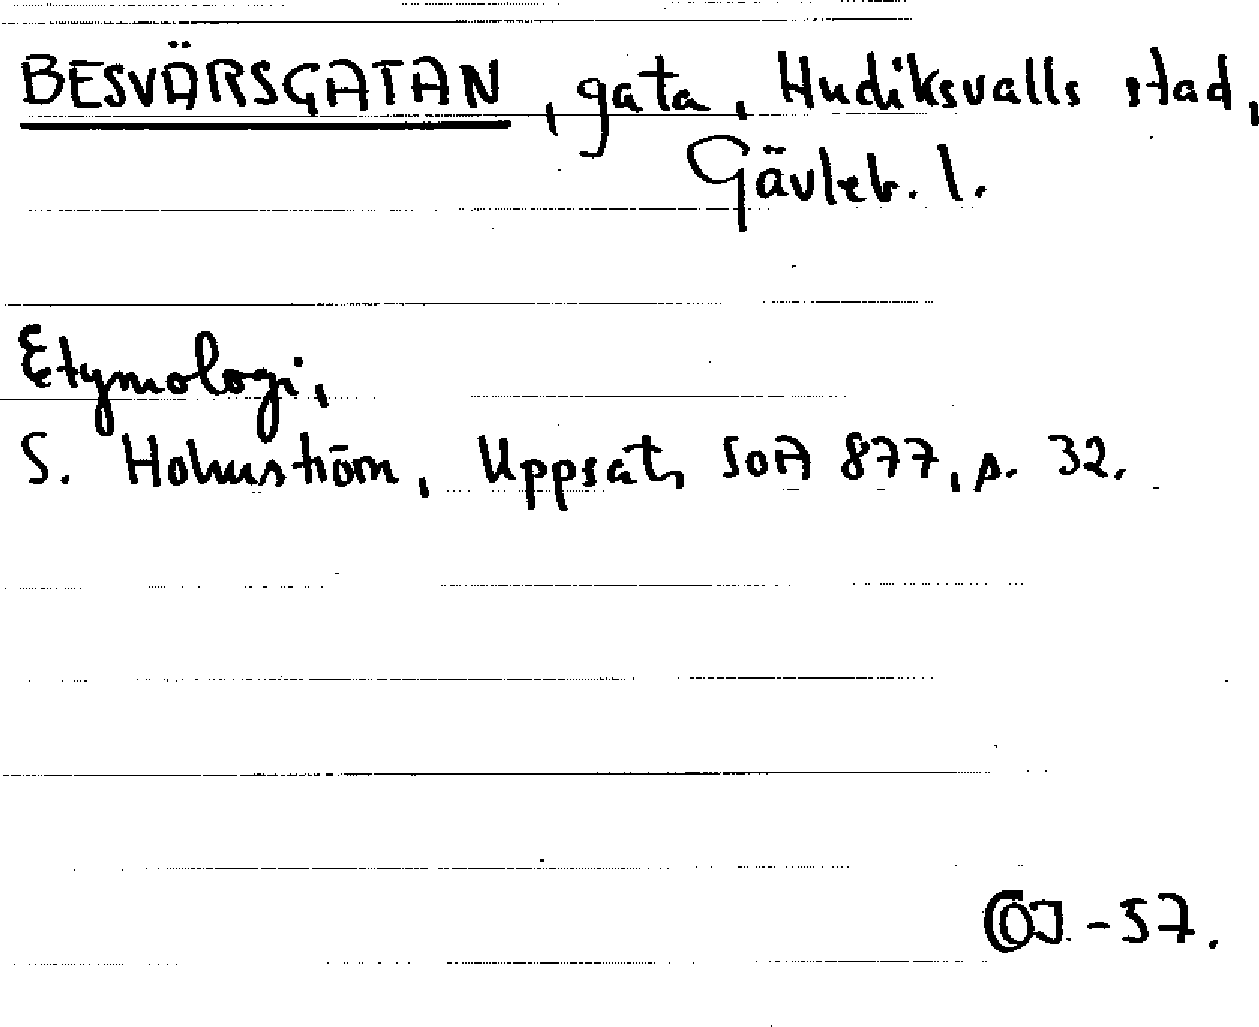 BESVÄRSGATAN, gata, Hudiksvalls stad,
Gävleb. l.
Etymologi,
S. Holmström, Uppsats SOA 877, s. 32.
-57.